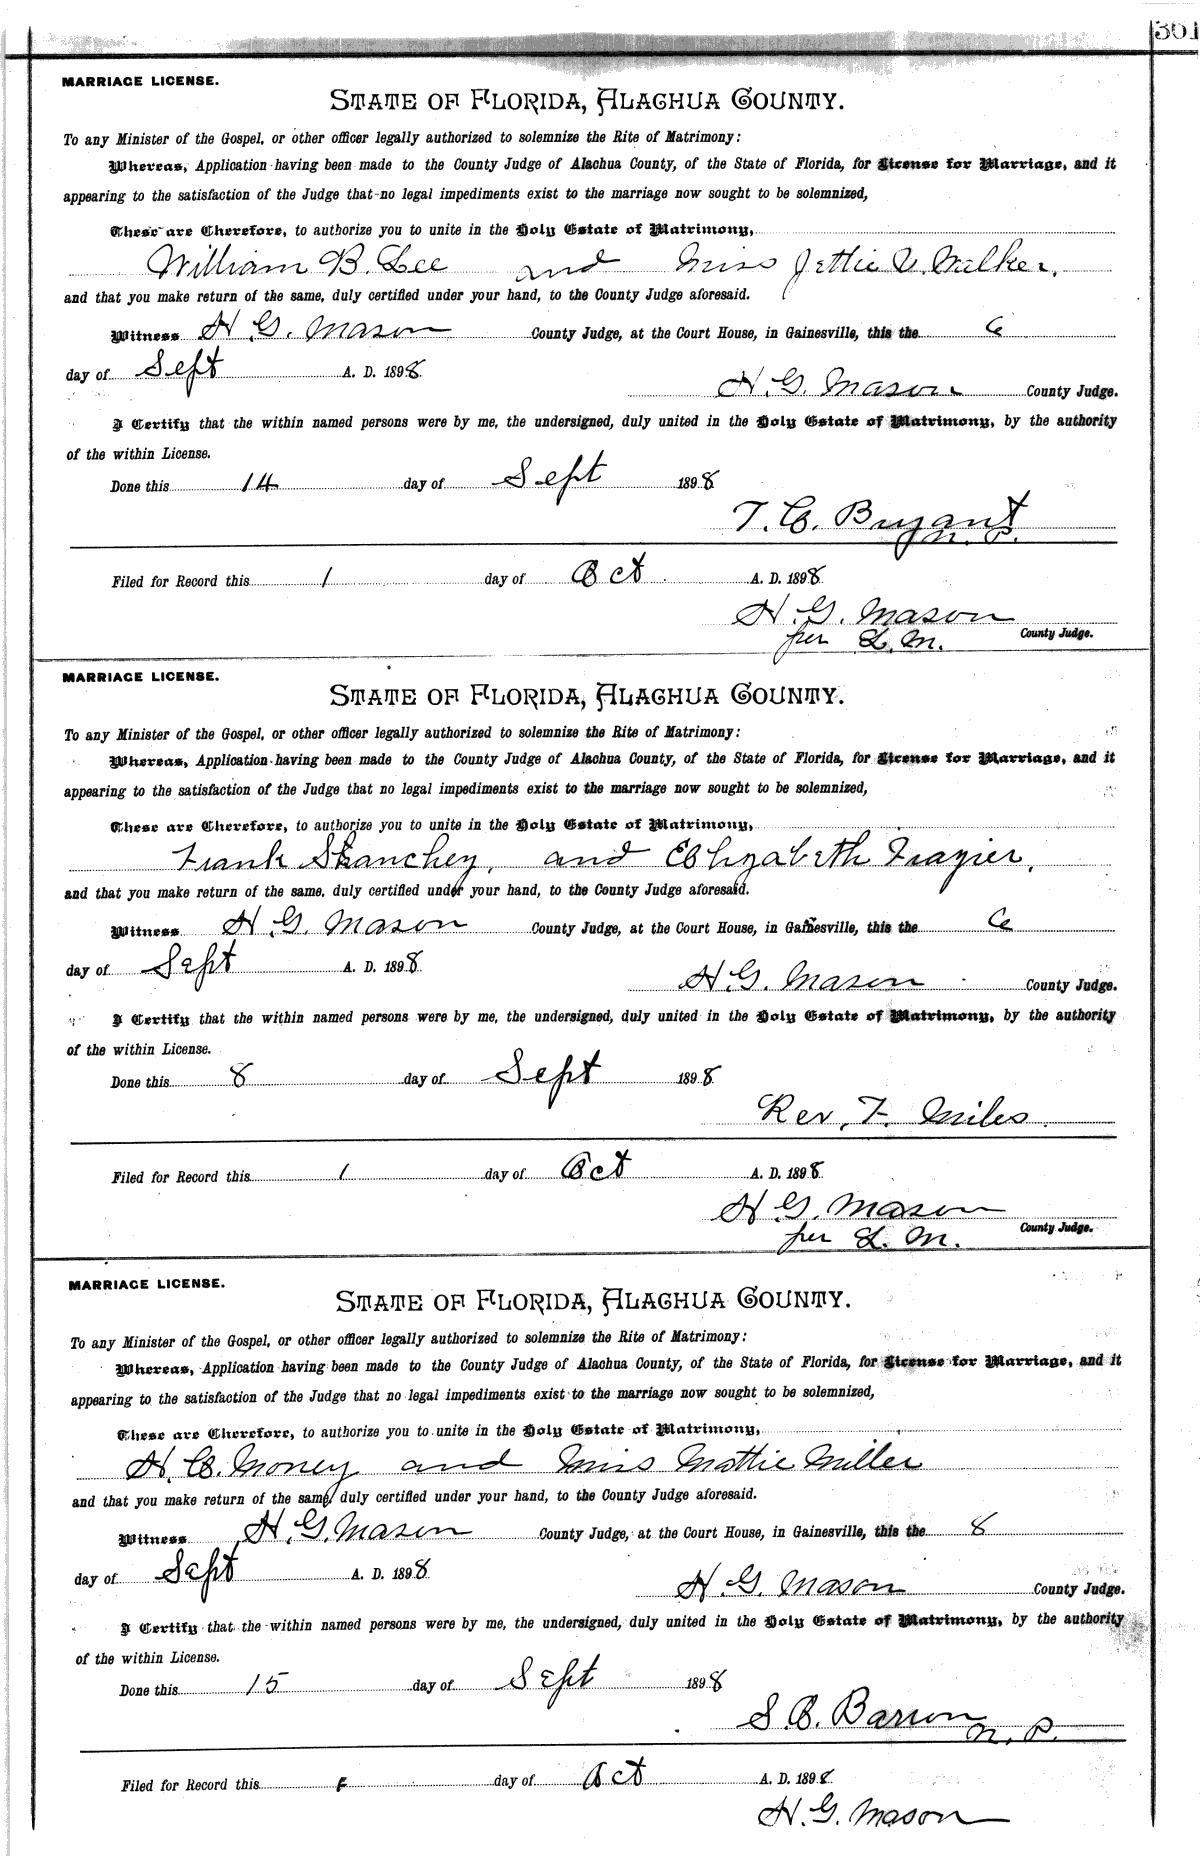 361
MARRIAGE LICENSE.
STATE OF FLORIDA, ALACHUA COUNTY.
To any Minister of the Gospel, or other officer legally authorized to solemnize the Rite of Matrimony:
Whereas, Application having been made to the County Judge of Alachua County, of the State of Florida, for License for Marriage, and it
appearing to the satisfaction of the Judge that no legal impediments exist to the marriage now sought to be solemnized,
These are Therefore, to authorize you to unite in the Holy Estate of Matrimony,
William B. Lee and Miss Jettie V. Walker,
and that you make return of the same, duly certified under your hand, to the County Judge aforesaid.
Witness H. G. Mason County Judge, at the Court House, in Gainesville, this the 6
day of Sept A. D. 1898
H. G. Mason County Judge.
I Certify that the within named persons were by me, the undersigned, duly united in the Holy Estate of Matrimony, by the authority
of the within License.
Done this 14 day of Sept 1898
T. C. Bryant
N. P.
Filed for Record this 1 day of Oct A. D. 1898
H. G. Mason
per L. M. County Judge.
MARRIAGE LICENSE.
STATE OF FLORIDA, ALACHUA COUNTY.
To any Minister of the Gospel, or other officer legally authorized to solemnize the Rite of Matrimony:
Whereas, Application having been made to the County Judge of Alachua County, of the State of Florida, for License for Marriage, and it
appearing to the satisfaction of the Judge that no legal impediments exist to the marriage now sought to be solemnized,
These are Therefore, to authorize you to unite in the Holy Estate of Matrimony,
Frank and Elizabeth Frazier,
and that you make return of the same, duly certified under your hand, to the County Judge aforesaid.
Witness H. G. Mason County Judge, at the Court House, in Gainesville, this the 6
day of Sept A. D. 1898
H. G. Mason County Judge.
I Certify that the within named persons were by me, the undersigned, duly united in the Holy Estate of Matrimony, by the authority
of the within License.
Done this 8 day of Sept 1898
Rev. F. Miles
Filed for Record this 1 day of Oct A. D. 1898
H. G. Mason
per L. M. County Judge.
MARRIAGE LICENSE.
STATE OF FLORIDA, ALACHUA COUNTY.
To any Minister of the Gospel, or other officer legally authorized to solemnize the Rite of Matrimony:
Whereas, Application having been made to the County Judge of Alachua County, of the State of Florida, for License for Marriage, and it
appearing to the satisfaction of the Judge that no legal impediments exist to the marriage now sought to be solemnized,
These are Therefore, to authorize you to unite in the Holy Estate of Matrimony,
H. C. Money and Miss Mattie Miller
and that you make return of the same, duly certified under your hand, to the County Judge aforesaid.
Witness H. G. Mason County Judge, at the Court House, in Gainesville, this the 8
day of Sept A. D. 1898
H. G. Mason County Judge.
I Certify that the within named persons were by me, the undersigned, duly united in the Holy Estate of Matrimony, by the authority
of the within License.
Done this 15 day of Sept 1898
S. C. Barron
N. P.
Filed for Record this day of Oct A. D. 1898
H. G. Mason